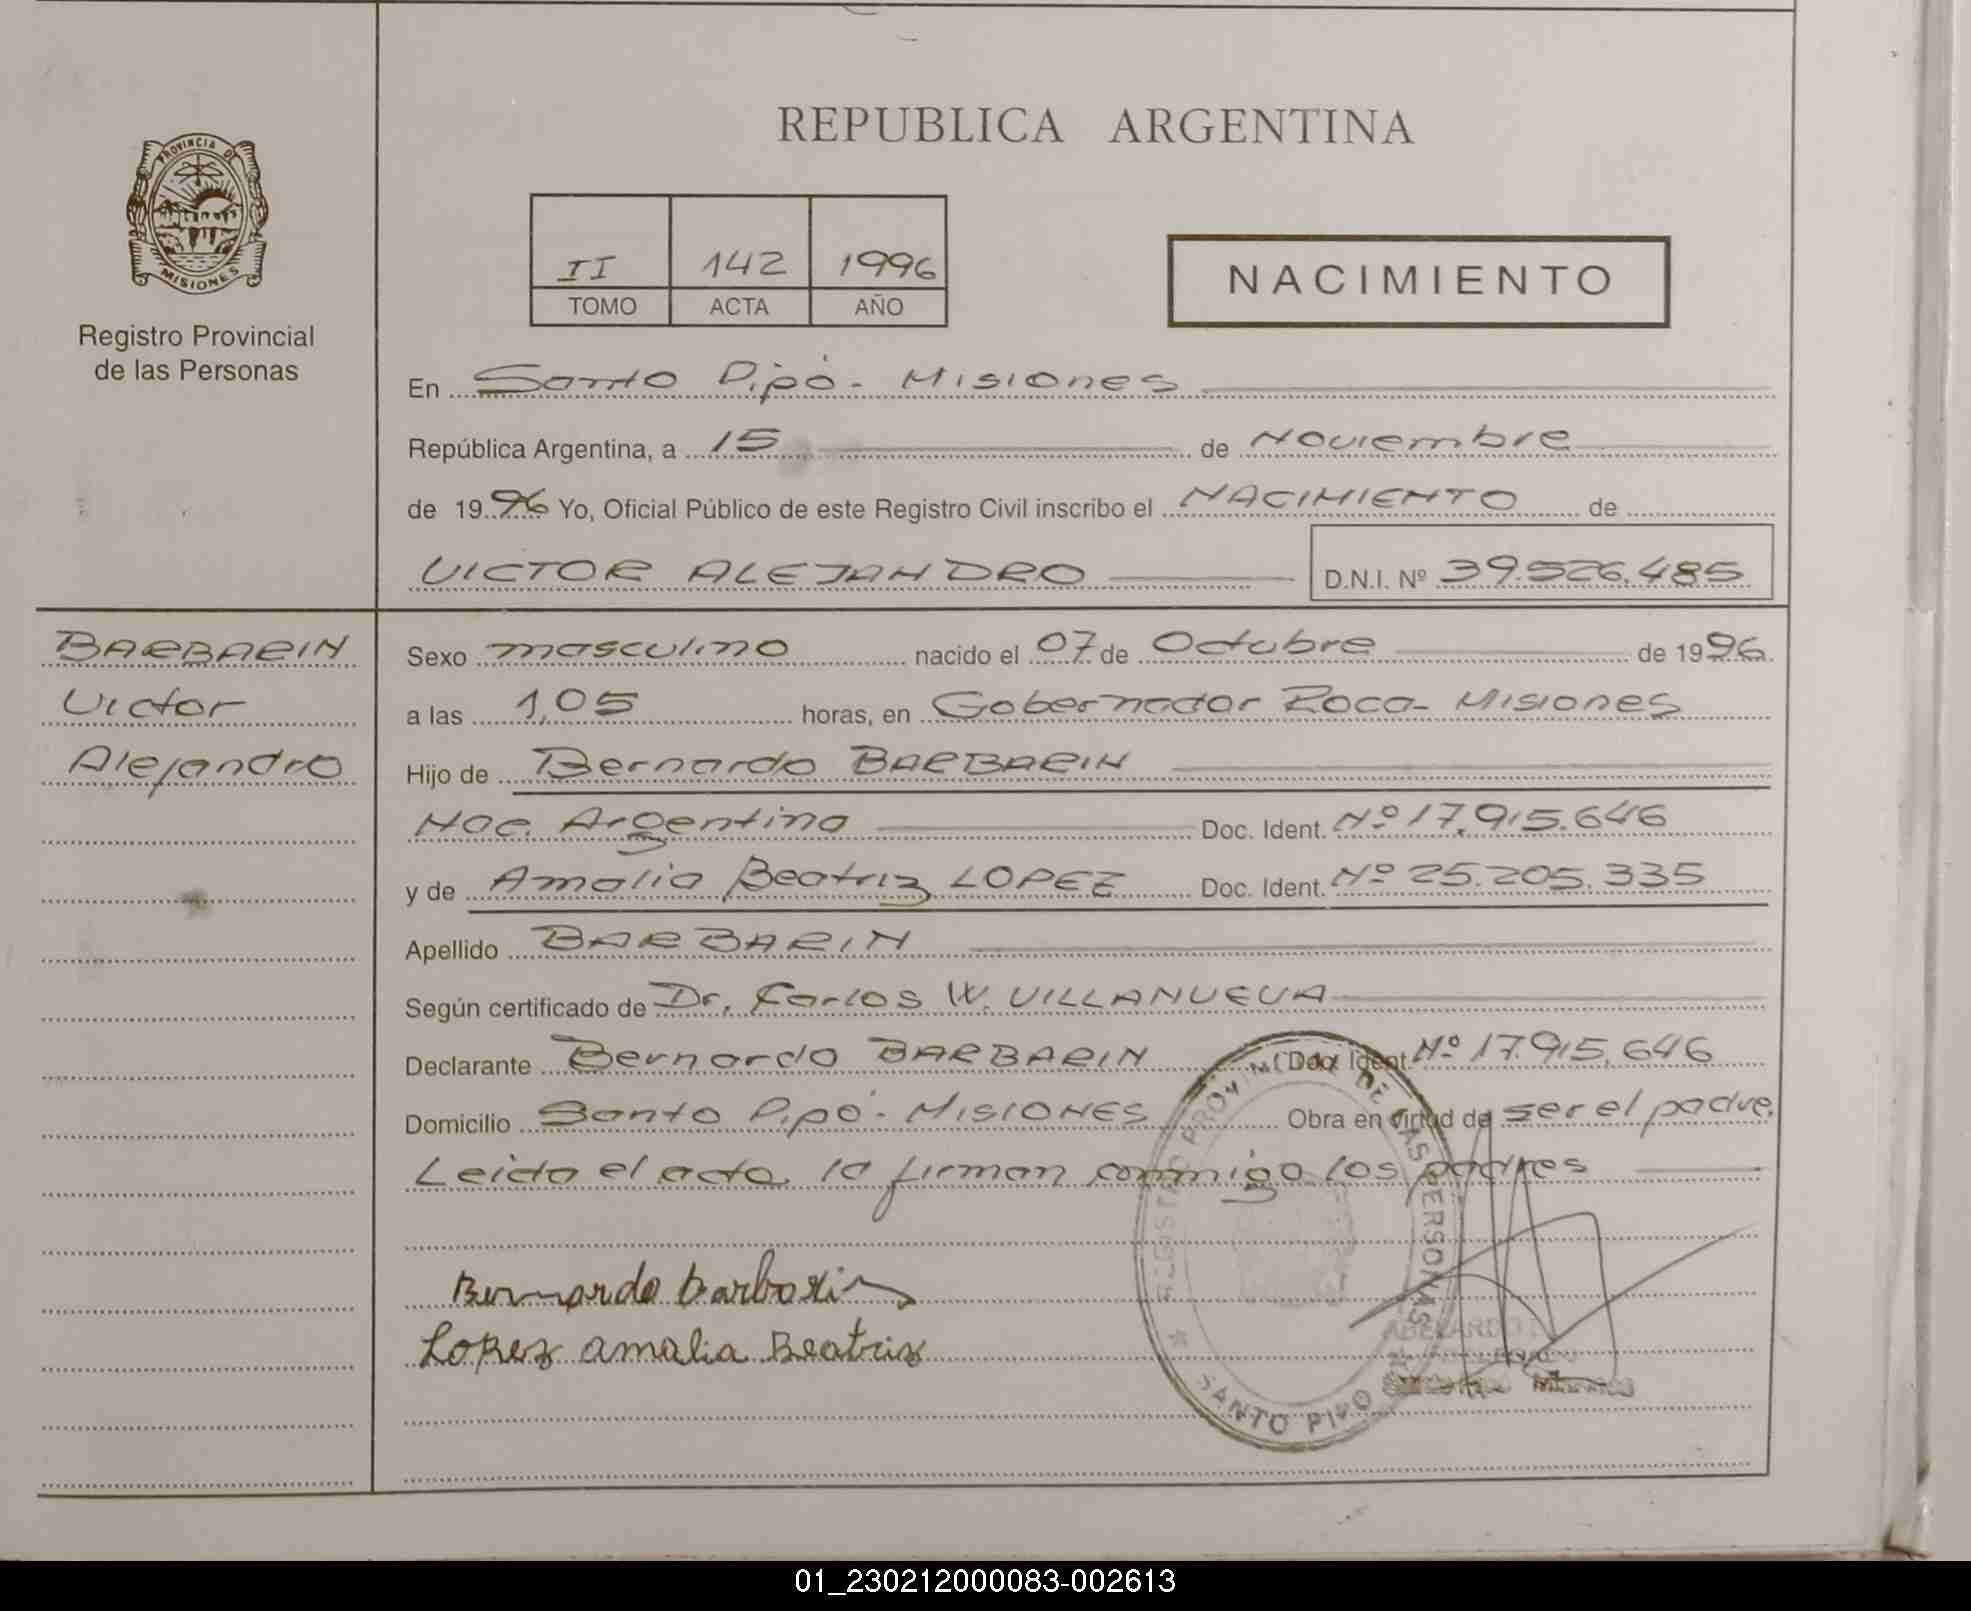 REPUBLICA ARGENTINA
PROVINCIA DE
MISIONES
Registro Provincial
de las Personas
II 142 1996
TOMO ACTA AÑO
NACIMIENTO
En Santo Pipó - Misiones
República Argentina, a 15 de Noviembre
de 1996 Yo, Oficial Público de este Registro Civil inscribo el NACIMIENTO de
VICTOR ALEJANDRO D.N.I. Nº 39.526.485
BARBARIN
Victor
Alejandro
Sexo masculino nacido el 07 de Octubre de 1996
a las 1,05 horas, en Gobernador Roca - Misiones
Hijo de Bernardo BARBARIN
Nac. Argentina Doc. Ident. Nº 17.915.646
y de Amalia Beatriz LOPEZ Doc. Ident. Nº 25.205.335
Apellido BARBARIN
Según certificado de Dr. Carlos W. VILLANUEVA
Declarante Bernardo BARBARIN Doc. Ident. Nº 17.915.646
Domicilio Santo Pipó - MISIONES Obra en virtud de ser el padre.
Leida el acta la firman conmigo los padres
Bernardo Barbarin
Lopez Amalia Beatriz
PROVINCIAL DE LAS PERSONAS
SANTO PIPO
ABELARDO
01_230212000083-002613